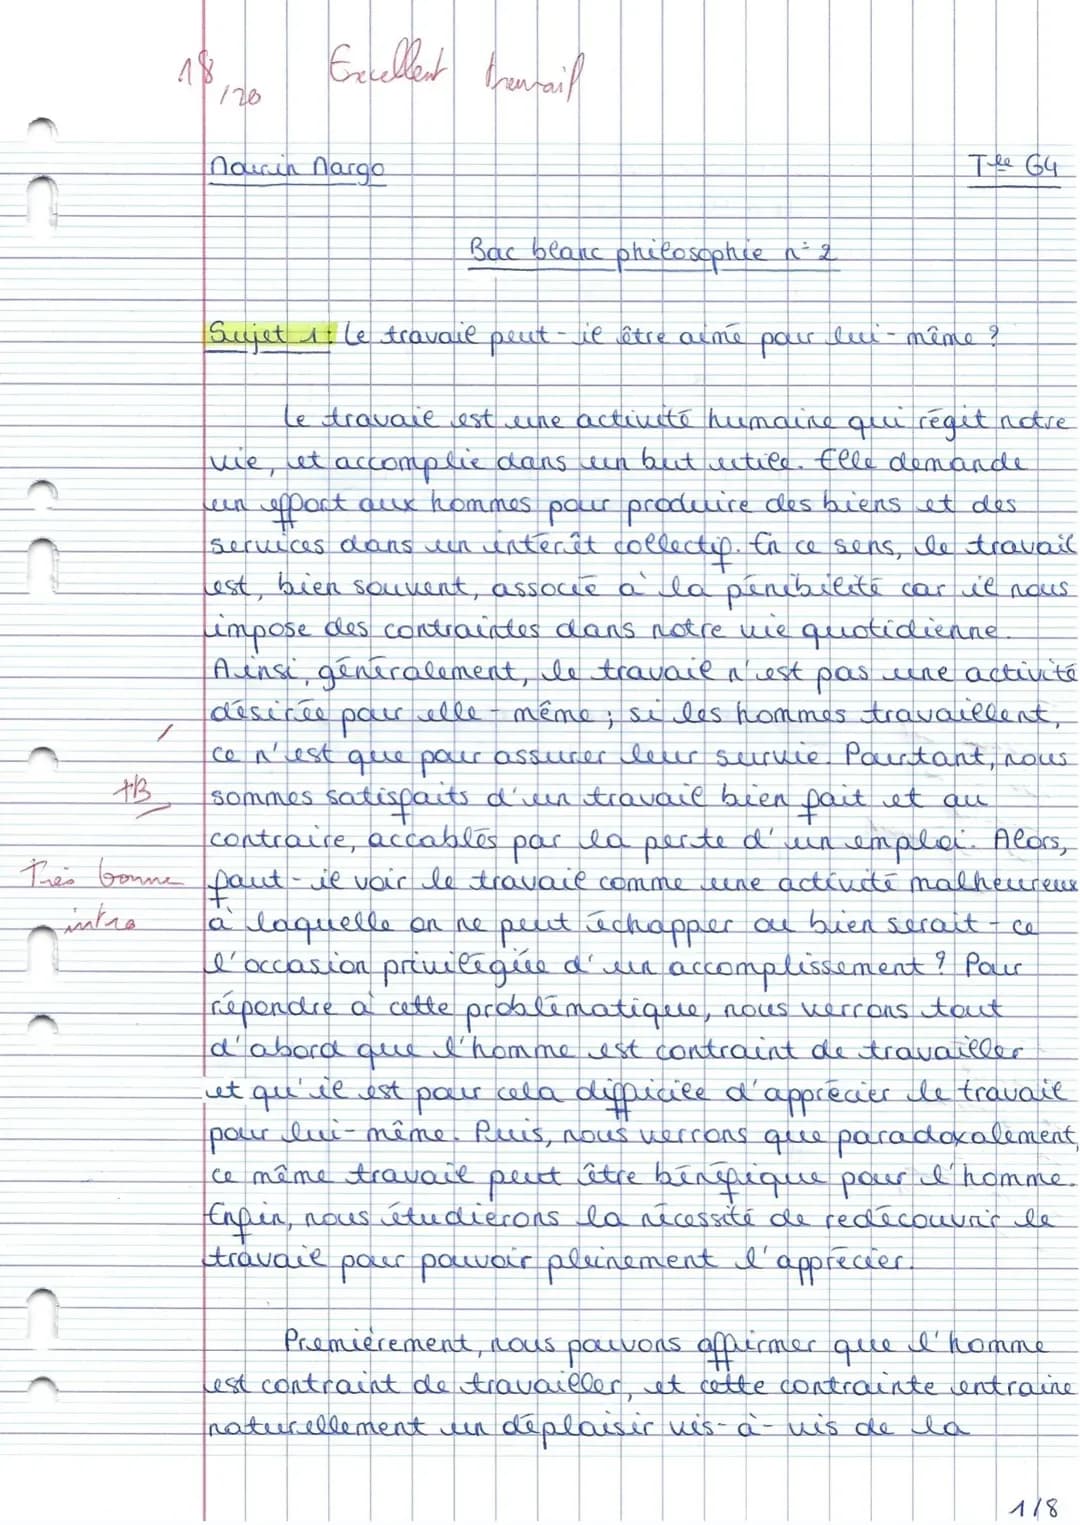 18/20 Excellent travail
Mourin Margo
Tle G4
Bac blanc philosophie n°2
Sujet 1: Le travail peut-il être aimé pour lui-même ?
Le travail est une activité humaine qui régit notre
vie, et accomplie dans un but utile. Elle demande
un effort aux hommes pour produire des biens et des
services dans un intérêt collectif. En ce sens, le travail
est, bien souvent, associé à la pénibilité car il nous
impose des contraintes dans notre vie quotidienne.
Ainsi, généralement, le travail n'est pas une activité
désirée pour elle-même ; si les hommes travaillent,
ce n'est que pour assurer leur survie. Pourtant, nous
TB
sommes satisfaits d'un travail bien fait et au
contraire, accablés par la perte d'un emploi. Alors,
Très bonne
intro
faut-il voir le travail comme une activité malheureux
à laquelle on ne peut échapper ou bien serait-ce
l'occasion privilégiée d'un accomplissement ? Pour
répondre à cette problématique, nous verrons tout
d'abord que l'homme est contraint de travailler
et qu'il est pour cela difficile d'apprécier le travail
pour lui-même. Puis, nous verrons que paradoxalement,
ce même travail peut être bénéfique pour l'homme.
Enfin, nous étudierons la nécessité de redécouvrir le
travail pour pouvoir pleinement l'apprécier.
Premièrement, nous pouvons affirmer que l'homme
est contraint de travailler, et cette contrainte entraine
naturellement un déplaisir vis-à-vis de la
1/8